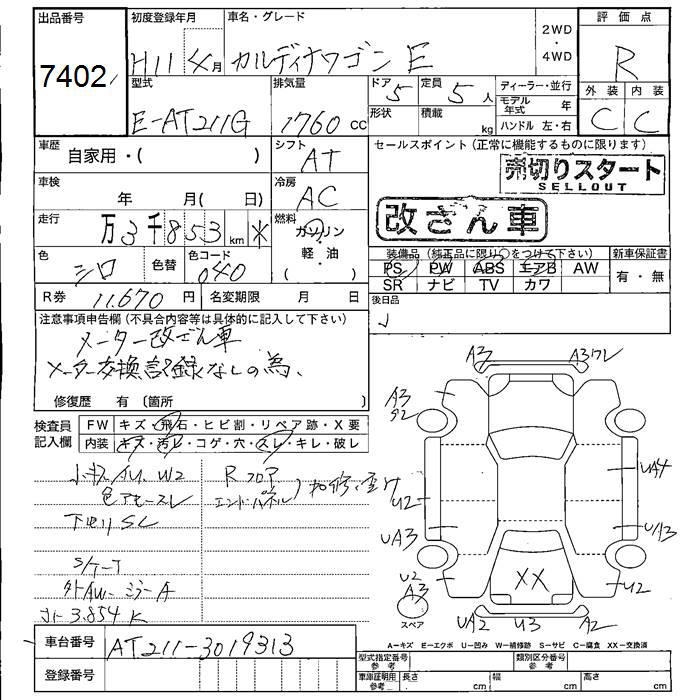 出品番号 初度登録年月 車名・グレード 2WD・4WD 評価点
7402 H11 4月 カルディナワゴン E R
型式 排気量 ドア 5 定員 5人 ディーラー・並行 外装 内装
E-AT211G 1760cc 形状 積載 kg モデル年式 年 C C
ハンドル 左・右
車歴 自家用・( ) シフト AT セールスポイント (正常に機能するものに限ります)
売切りスタート
SELLOUT
車検 年 月( 日) 冷房 AC
改ざん車
走行 万3千853km * 燃料 ガソリン・軽・油 ( )
装備品 (純正品に限り○をつけて下さい) 新車保証書
PS PW ABS エアB AW 有・無
SR ナビ TV カワ
色 シロ 色替 色コード 040
後日品
R券 11,670円 名変期限 月 日
注意事項申告欄(不具合内容等は具体的に記入して下さい)
メーター改ざん車
メーター交換記録なしの為、
修復歴 有〔箇所 〕
検査員記入欄 FW キズ・飛石・ヒビ割・リペア跡・X要
内装 キズ・汚レ・コゲ・穴・スレ・キレ・破レ
小キズ AU. W2 Rフロア
色アセ スレ エンドパネル
下回りSC
S/キーT
外AW ミラーA
3.854K
A3 A3ワレ
A3
UA4
U2
UA3 UA3
XX
U2 U2
A3
スペア UA2 U3 A2
A−キズ E−エクボ U−凹み W−補修跡 S−サビ C−腐食 XX−交換済
車台番号 AT211-3019313
型式指定番号 参考 類別区分番号 参考
登録番号 車庫証明用 参考 長さ cm 幅 cm 高さ cm